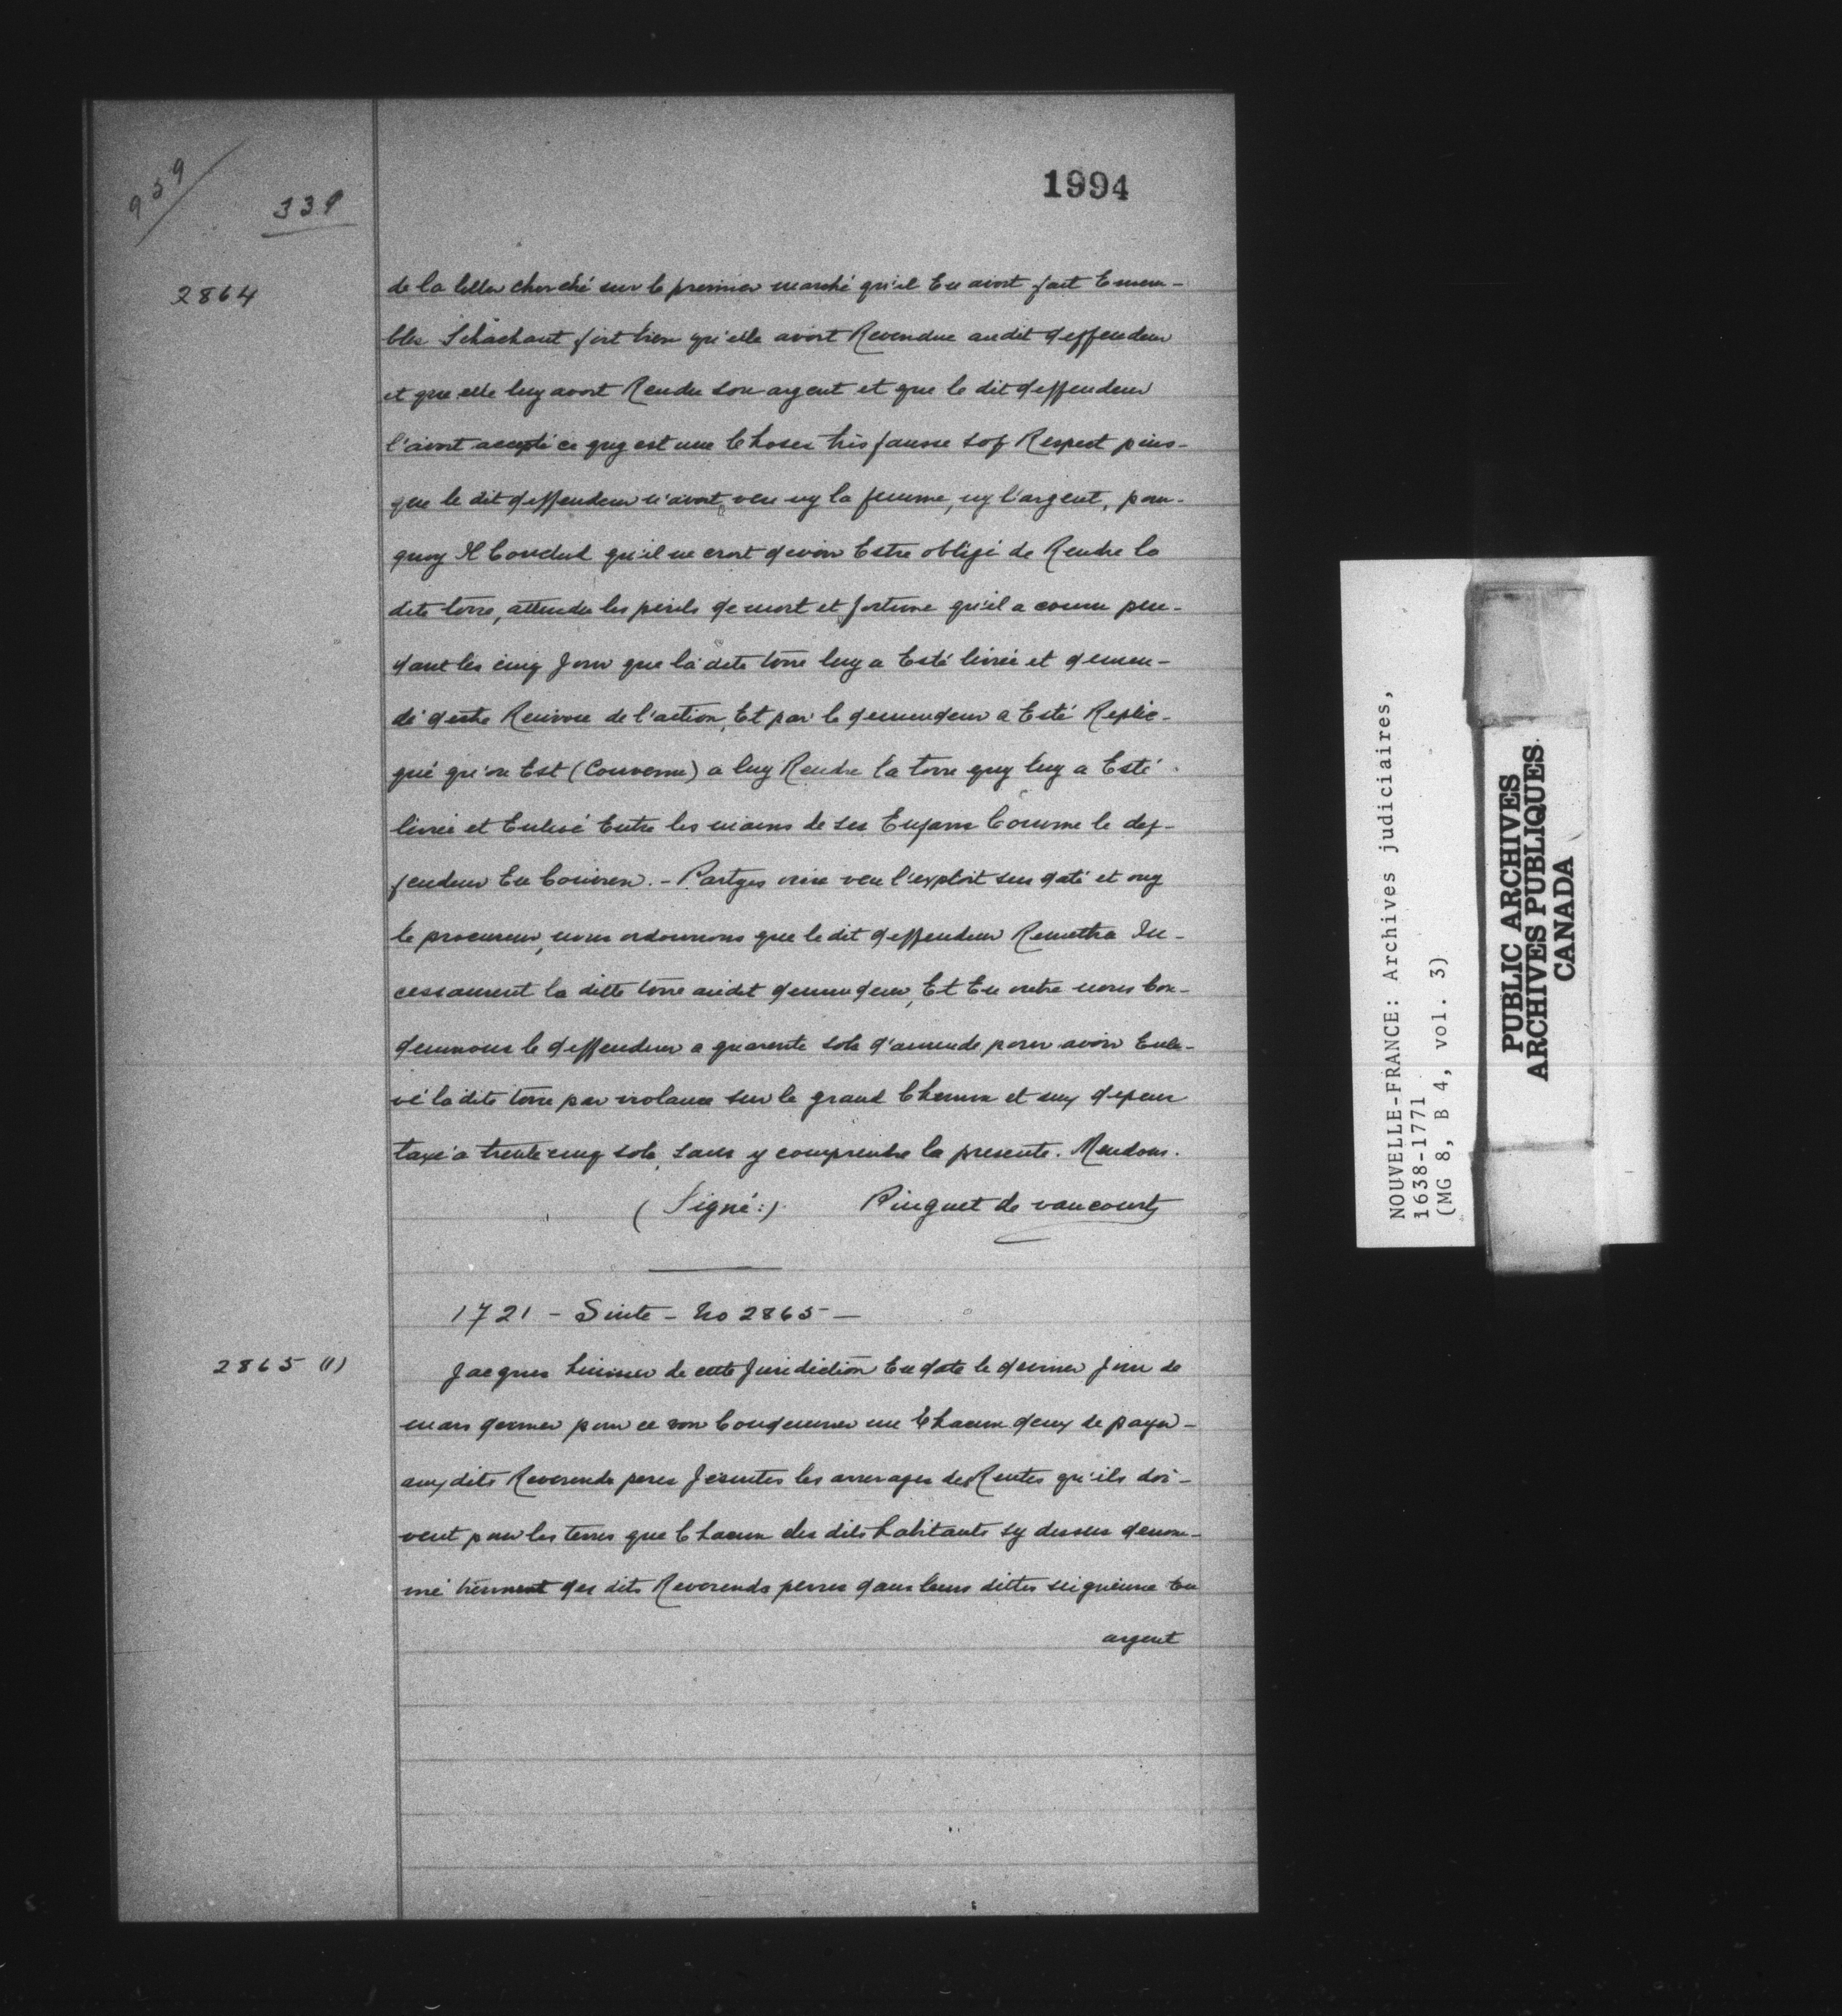 959
339
1994
2864
de la cherché sur le premier marché qu'il En avoit fait Ensem-
ble Schachant fort bien qu'elle avoit Revendue audit deffendeur
et que elle luy avoit Rendu son argent et que le dit deffendeur
l'avoit accepté ce quy est une Choses très fausse sof Respect puis-
que le dit deffendeur n'avoit veu ny la femme, ny l'argent, pour-
quoy Il Conclud qu'il ne croit devoir Estre obligé de Rendre la
dite torre, attendu les périls de mort et fortune qu'il a couru pen-
dant les cinq Jour que la dite torre luy a Esté livrée et demen-
dé destre Renvoie de l'action, Et par le demendeur a Esté Replic-
qué qu'on Est (Convenu) a luy Rendre la torre quy luy a Esté
livrée et Enlevé Entre les mains de ses Enfans Comme le def-
fendeur En Convien. - Partyes veu l'exploit sus daté et ouy
le procureur, nous ordonnons que le dit deffendeur Remettra In-
cessament la ditte torre audit demendeur, Et En outre nous Con-
demnons le deffendeur a quarente sols d'amende pour avoir Enle-
vé la dite torre par violance sur le grand Chemin et aux depens
taxé a trente cinq sols, sans y comprendre la presente. Mendons.
(Signé:) Pinguet de vaucourt
1721 - Suite - No 2865 -
2865 (1)
Jacques huissier de cette Juridiction En date le dernier Jour de
mars dernier pour ce voir Condemner un Chacun deux de payer
aux dits Reverends peres Jesuites les arrerages des Rentes qu'ils doi-
vent pour les terres que Chacun des dits habitants sy dessus denom-
mé tiennent des dits Reverends perres dans leurs dittes seigneurie En
argent
NOUVELLE-FRANCE: Archives judiciaires,
1638-1771
(MG 8, B 4, vol. 3)
PUBLIC ARCHIVES
ARCHIVES PUBLIQUES
CANADA